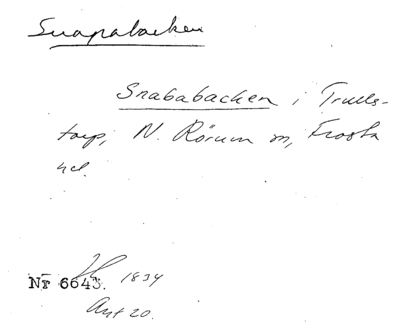 Snapabacken
Snababacken i Trulls-
torp, N. Rörum sn, Frosta
hd.
Nr 6643. 1834
Ant 20.